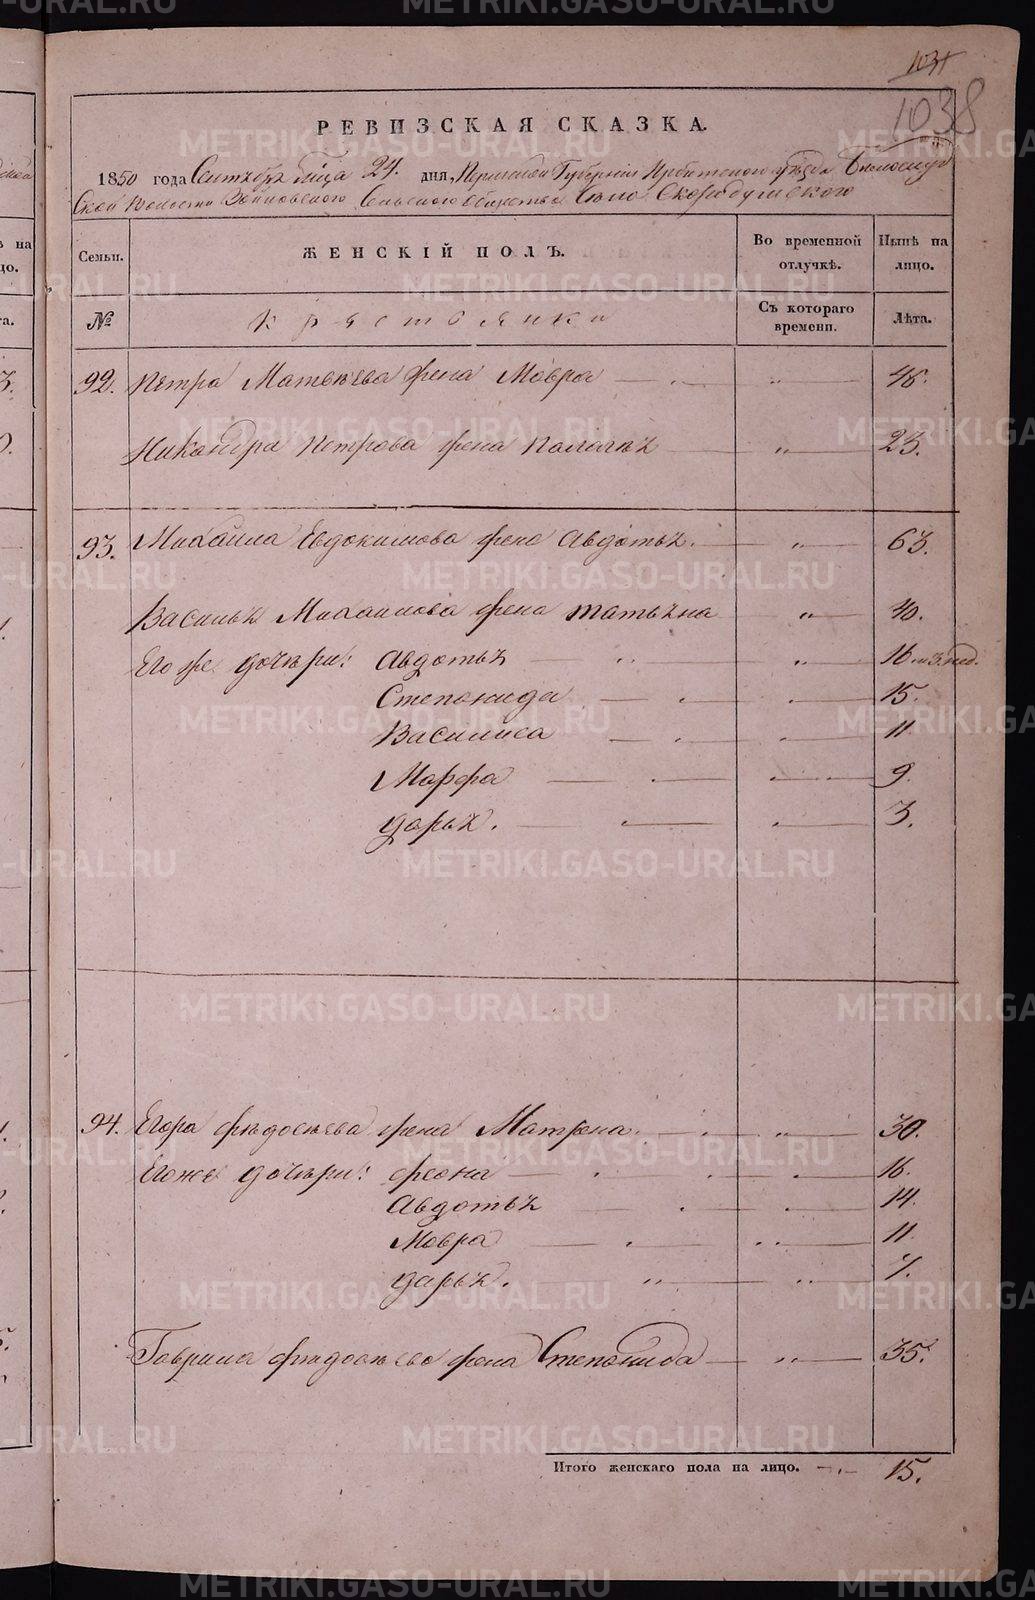 1031
1038
РЕВИЗСКАЯ СКАЗКА.
1850 года Сентября м҃ца 24. дня, Пермской Губерніи Ирбитскаго уѣзда Бѣлослуд
ской Волости Зайковскаго Сельскаго Общества Села Скородумскаго
Семьи. ЖЕНСКІЙ ПОЛЪ. Во временной отлучкѣ. Нынѣ на лицо.
№ Крестьянки Съ котораго времени. Лѣта.
92. Петра Матвѣева жена Мавра — „ — 48.
Никандра Петрова жена Палагѣя — „ — 23.
93. Михаила Евдокимова жена Авдотья. — „ — 63.
Василья Михаилова жена Татьяна „ — 40.
Его же дочери: Авдотья — „ — 16
Степанида — 15.
Василиса — 11
Марфа — 9.
Дарья. — 3.
94. Егора Федосѣева жена Матрена. — „ — 30.
Его же дочери: Феона — 16.
Авдотья — 14.
Мавра — 11.
Дарья. „ — 7.
Гаврила Федосѣева жена Степанида — „ — 35.
Итого женскаго пола на лицо. — 15.
METRIKI.GASO-URAL.RU